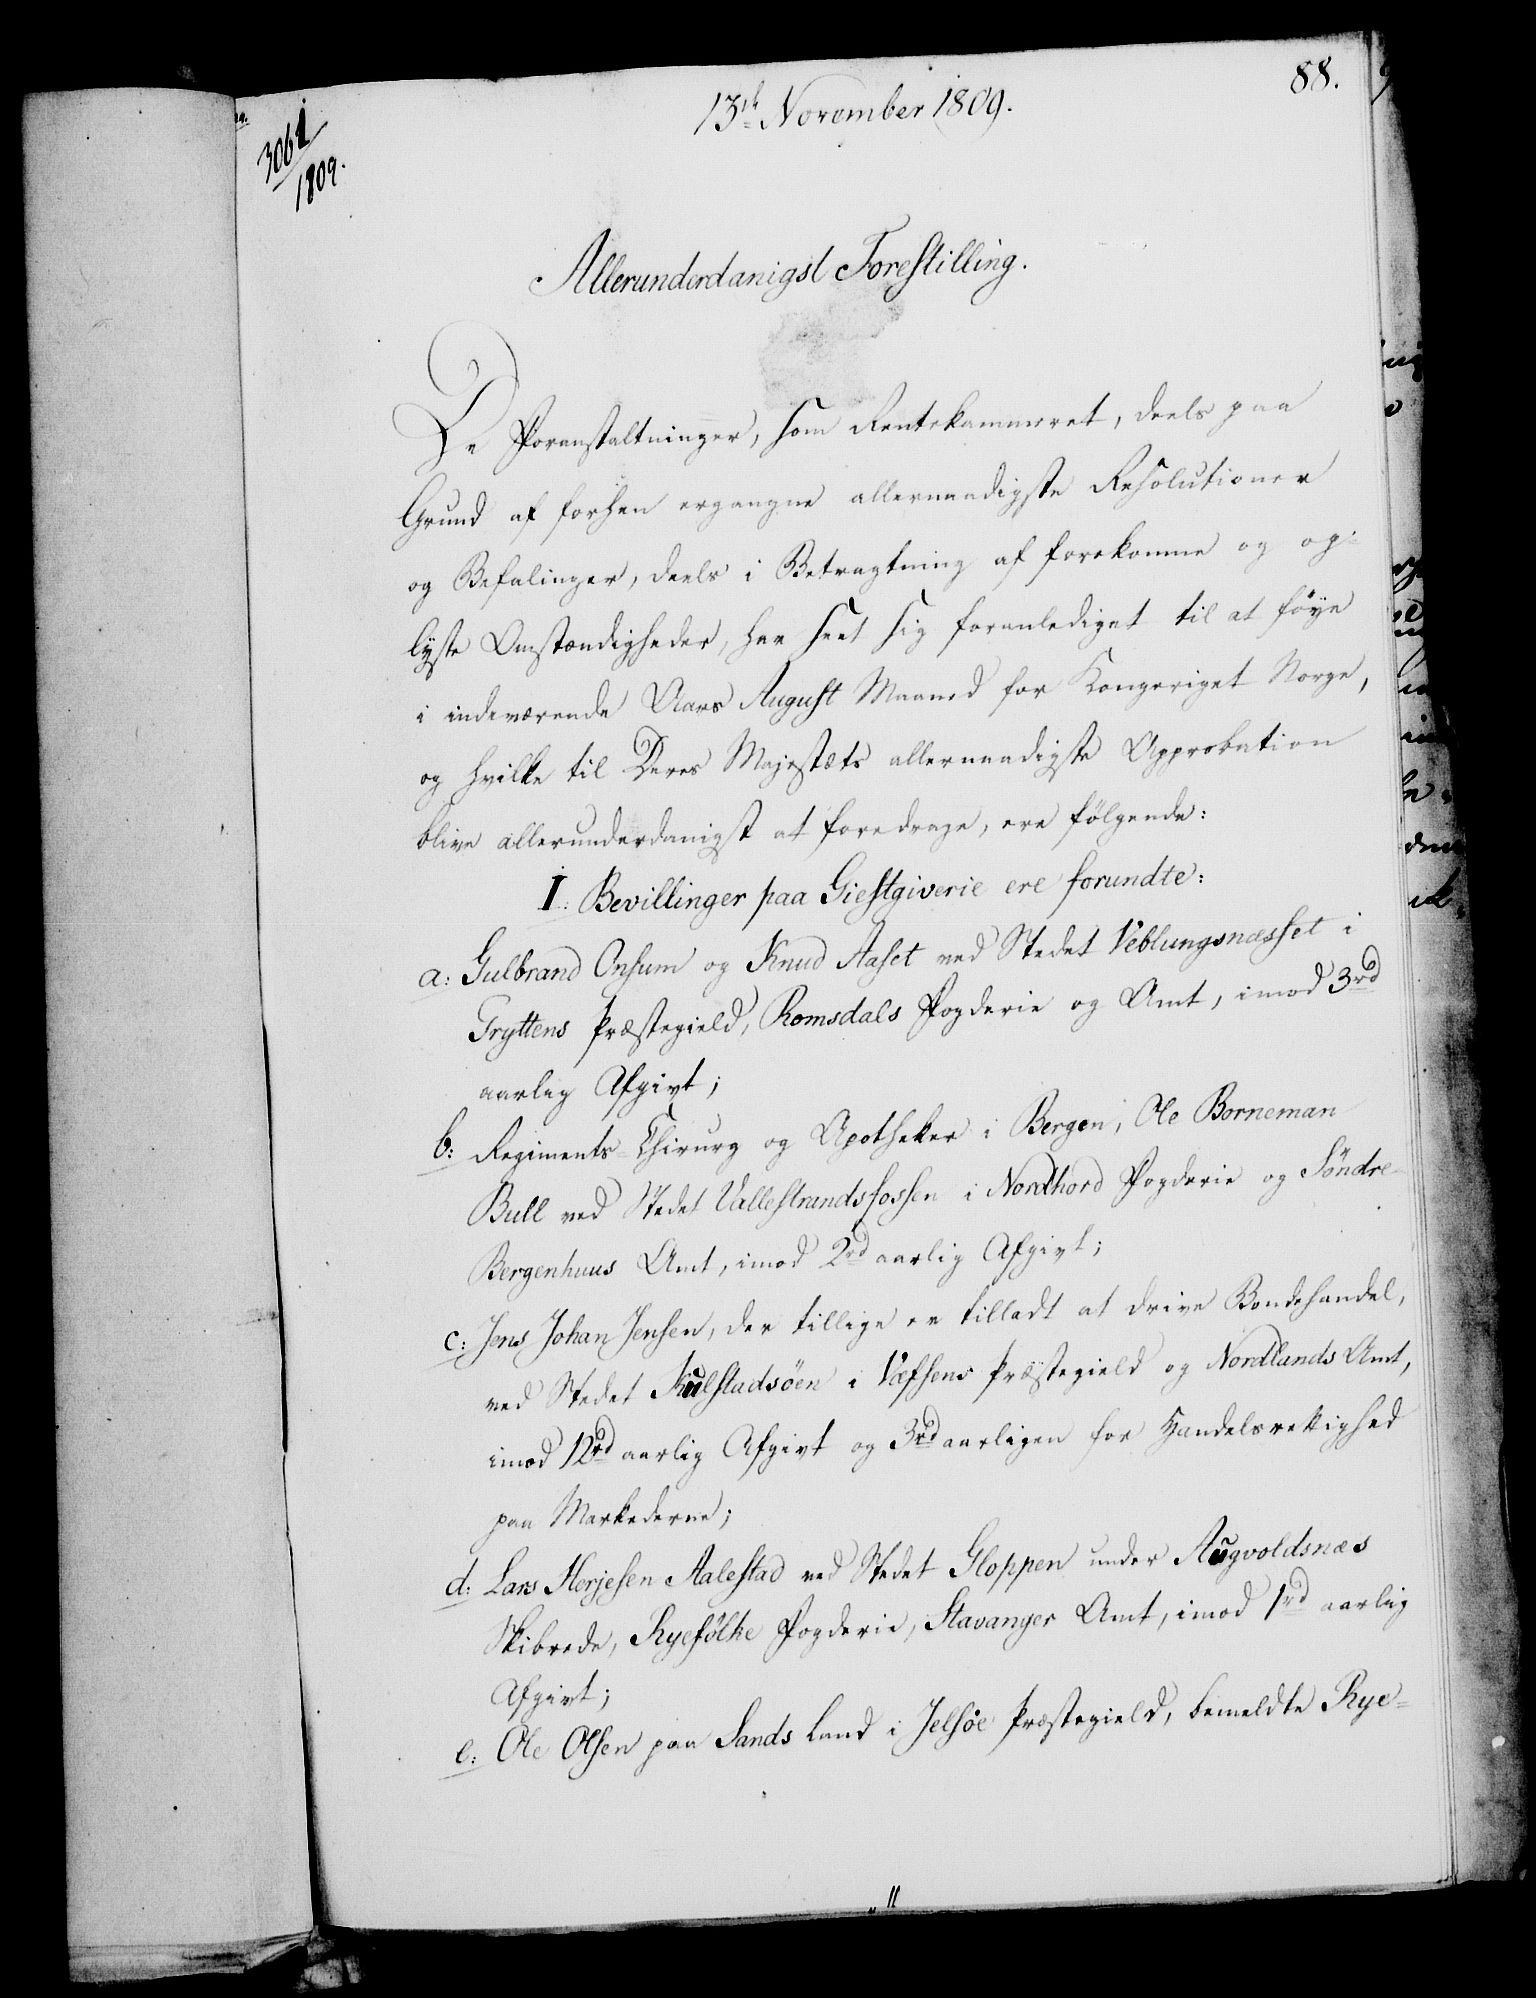 88.
13de November 1809.
3061/1809.
Allerunderdanigst Forestilling.
De Foranstaltninger, som Rentekammeret, deels paa
Grund af forhen ergangne allernaadigste Resolutioner
og Befalinger, deels i Betragtning af forekomne og op-
lyste Omstændigheder, har seet sig foranlediget til at føye
i indeværende Aars August Maaned for Kongeriget Norge,
og hvilke til Deres Majestæts allernaadigste Approbation
blive allerunderdanigst at foredrage, ere følgende:
I: Bevillinger paa Giestgiverie ere forundte:
a: Gulbrand Onsum og Knud Aaset ved Stedet Veblungsnæsset i
Gryttens Præstegield, Romsdals Fogderie og Amt, imod 3rd
aarlig Afgivt;
b: Regiments-Chirurg og Apotheker i Bergen, Ole Borneman
Bull ved Stedet Vallestrandsfossen i Nordhord Fogderie og Söndre-
Bergenhuus Amt, imod 2rd aarlig Afgivt;
c: Jens Johan Jensen, der tillige er tilladt at drive Bondehandel,
ved Stedet Kulstadsöen i Vefsens Præstegield og Nordlands Amt,
imod 12rd aarlig Afgivt og 3rd aarligen for Handelsrettighed
paa Markederne;
d: Lars Herjesen Aalestad ved Stedet Gloppen under Augvoldsnæs
Skibrede, Ryefölke Fogderie, Stavanger Amt, imod 1rd aarlig
Afgivt;
e: Ole Olsen paa Sands Land i Jelsöe Præstegield, bemeldte Rye-